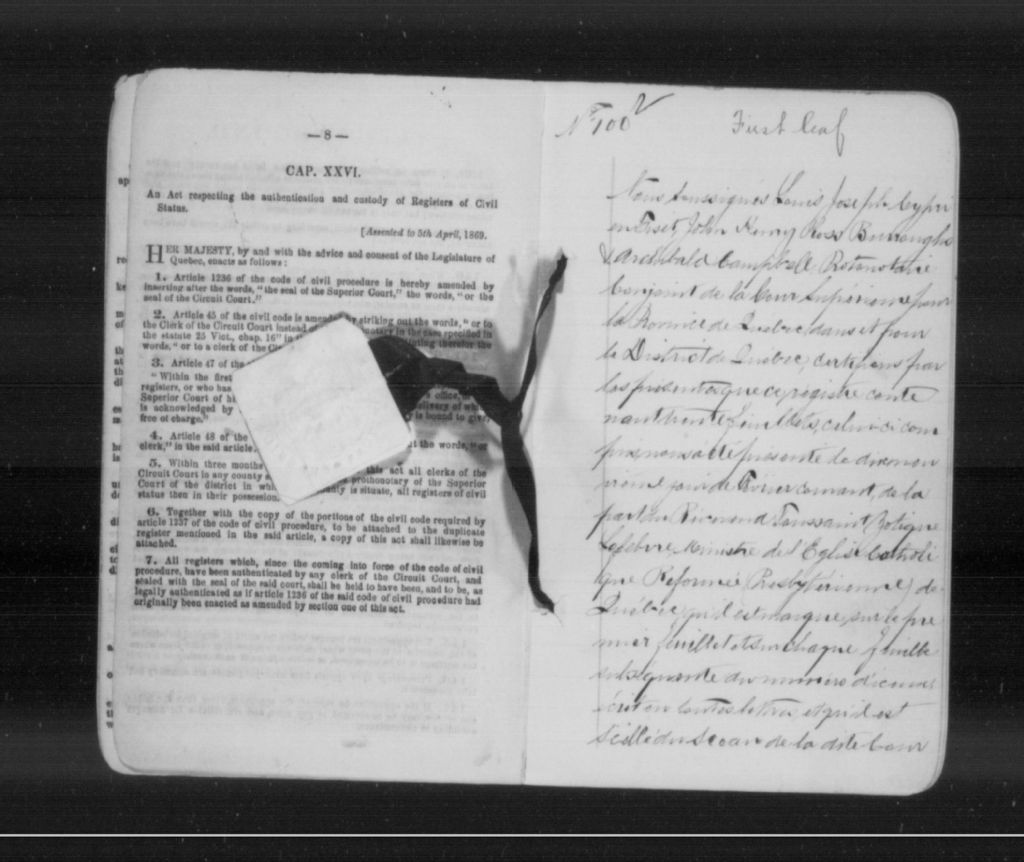 —8—
CAP. XXVI.
An Act respecting the authentication and custody of Registers of Civil
Status.
[Assented to 5th April, 1869.
HER MAJESTY, by and with the advice and consent of the Legislature of
Quebec, enacts as follows:
1. Article 1236 of the code of civil procedure is hereby amended by
inserting after the words, "the seal of the Superior Court," the words, "or the
seal of the Circuit Court."
2. Article 45 of the civil code is amended by striking out the words, "or to
the Clerk of the Circuit Court instead of notary in the case specified in
the statute 25 Vict., chap. 16" in therefor the
words, "or to a clerk of the
3. Article 47 of the
"Within the first
registers, or who has office,
Superior Court of delivery of
is acknowledged by is bound to give,
free of charge."
4. Article 48 of the the words, "or
clerk," in the said article.
5. Within three months this act all clerks of the
Circuit Court in any county prothonotary of the Superior
Court of the district in is situate, all registers of civil
status then in their possession.
6. Together with the copy of the portions of the civil code required by
article 1237 of the code of civil procedure, to be attached to the duplicate
register mentioned in the said article, a copy of this act shall likewise be
attached.
7. All registers which, since the coming into force of the code of civil
procedure, have been authenticated by any clerk of the Circuit Court, and
sealed with the seal of the said court, shall be held to have been, and to be, as
legally authenticated as if article 1236 of the said code of civil procedure had
originally been enacted as amended by section one of this act.
No 100
First leaf
Nous soussignés Louis Joseph Cypri
en Fiset, John Henry Ross Burroughs
& Archibald Campbell Protonotaire
Conjoint de la Cour Supérieure pour
la Province de Québec dans et pour
le District de Québec, certifions par
les présentes que ce registre conte
nant trente feuillets, celui-ci com
pris, nous a été présenté le dixneu
vième jour de Février courant, de la
part du Révérend Toussaint
Lefebvre, Ministre de l'Eglise Catholi
que Réformée (Presbytérienne) de
Québec, qu'il est marqué, sur le pre
mier feuillet et sur chaque feuille
subséquente du numéro d'icelui
écrit en toutes lettres, et qu'il est
scellé du sceau de la dite Cour